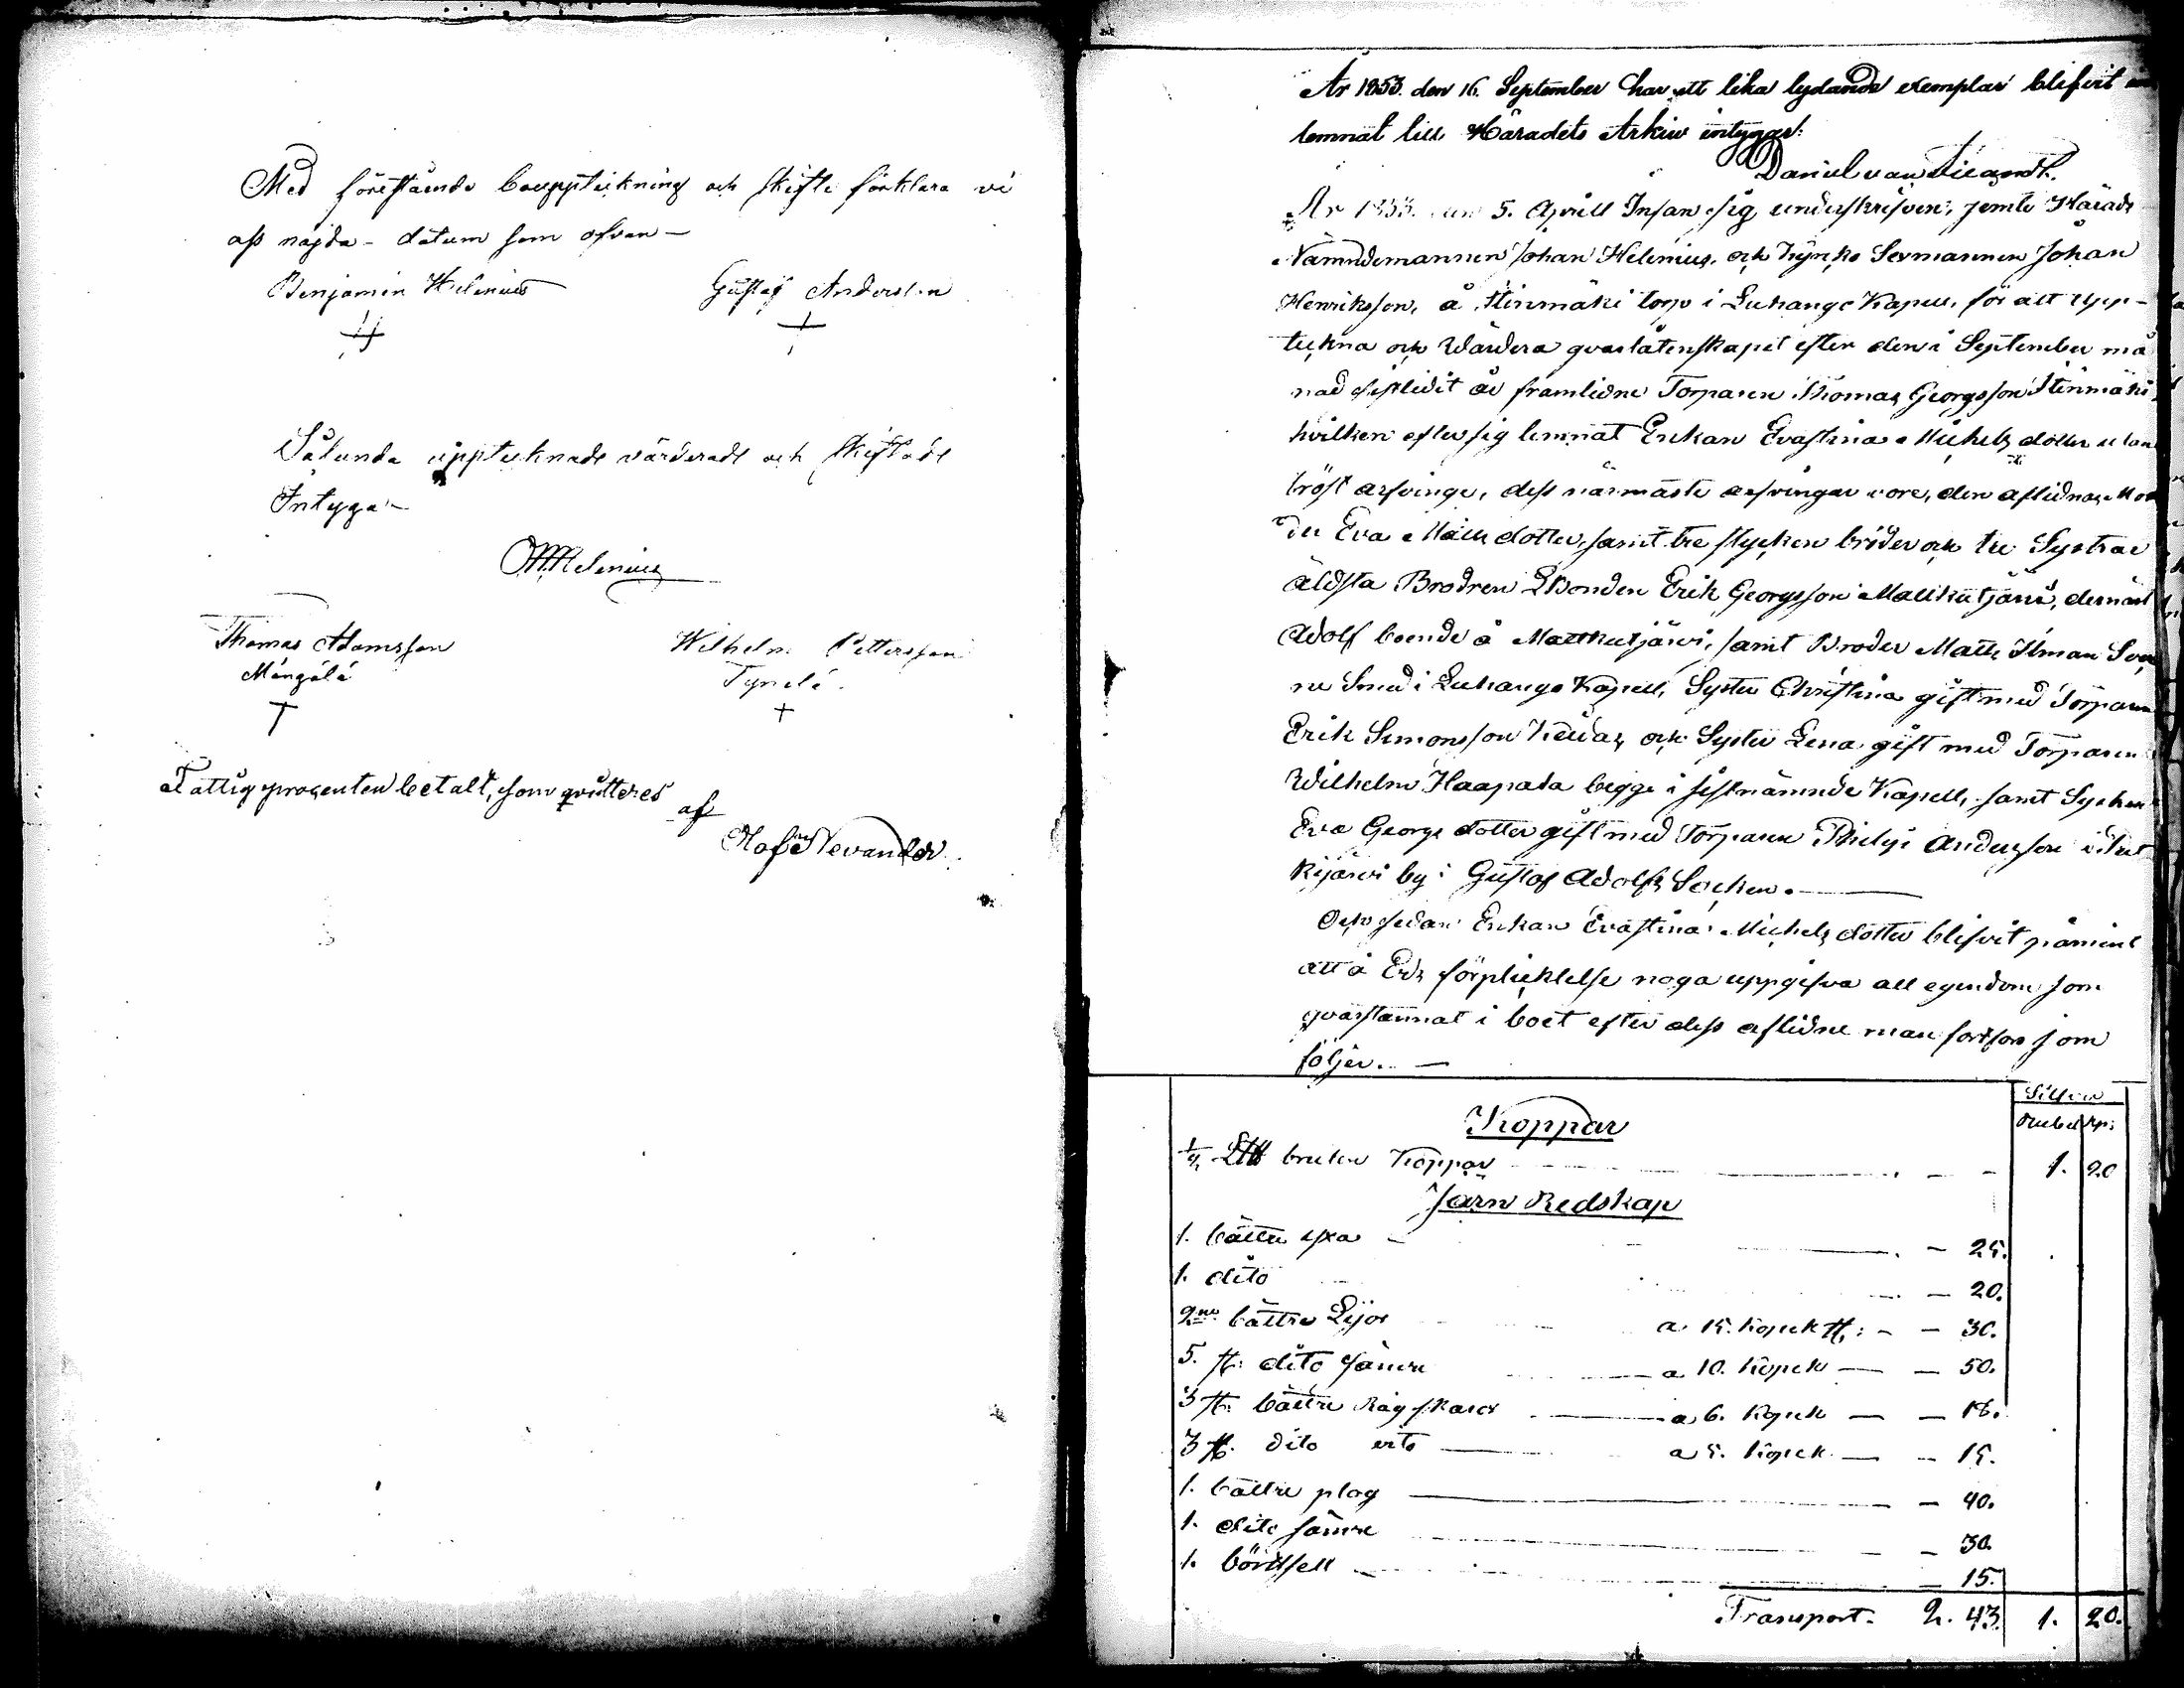 Med förestående bouppteckning och skifte förklara vi
oss nöjda - datum som ofvan -
Benjamin Helenius Gustaf Andersson
Sålunda upptecknade värderade och skiftade
Intyga -
Helenius
Thomas Adamsson Wilhelm Pettersson
Mängälä Tynelä.
Fattigprocenten betalt, som quitteres
af
Olof Nevander.
År 1853. den 16. September har ett lika lydande exemplar blifvit
lemnat till Häradets Arkiv intygar:
Daniel van
År 1853. den 5. Aprill Infan sig underskrifven, jemte Härads
Nämndemannen Johan Helenius, och Kyrko Sexmannen Johan
Henriksson, å Stinmäki torp i Luhango Kapell, för att upp-
tekna och Wärdera qvarlåtenskapet efter den i September må
nad sistledit år framledne Torparen Thomas Georgsson Stinmäki
hvilken efter sig lemnat Enkan Evastina Michels dotter utan
bröst arfvinge, dess närmaste arfvingar vore, den aflidnas Mo
der Eva Matts dotter, samt tre stycken bröder och tre Systrar
äldsta Brodren Bonden Erik Georgsson Matkutjärvi, dernäst
Adolf boende å Matkutjärvi, samt Broder Matts
Smed i Luhango Kapell, Syster Christina gift med Torparen
Erik Simonsson och Syster Lena gift med Torparen
Wilhelm Haapala begge i sistnämnde Kapell, samt Systren
Eva Georgs dotter gift med Torparen Philip Andersson i
kijärvi by i Gustaf Adolfs Socken. -
Och sedan Enkan Evastina Michels dotter blifvit påmint
att å Eds förplicktelse noga uppgifva all egendom som
qvarstannat i boet efter dess aflidne man fortfors som
följer. -
Silfver
Rubel Kp:
Koppar
1/2 L℔ bruten Koppar - - 1. 20
Järn Redskap
1. bättre yxa - - 25.
1. dito - 20.
2ne bättre Lijor a 15. kopek st: - - 30.
5. st: dito sämre - a 10. kopek - - 50.
3 st: bättre Råg skäror - a 6. kopek - - 18.
3 st. dito - a 5. kopek - - 15.
1. bättre plog - - 40.
1. dito sämre - - 30.
1. - 15.
Transport. 2. 43. 1. 20.